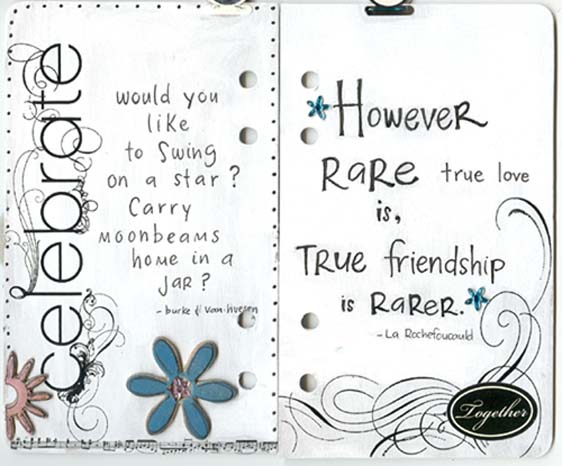 celebrate
would you
like
to swing
on a star?
Carry
moonbeams
home in a
jar?
- burke & van-huesen
However
Rare true love
is,
True friendship
is rarer.
- La Rochefoucauld
Together